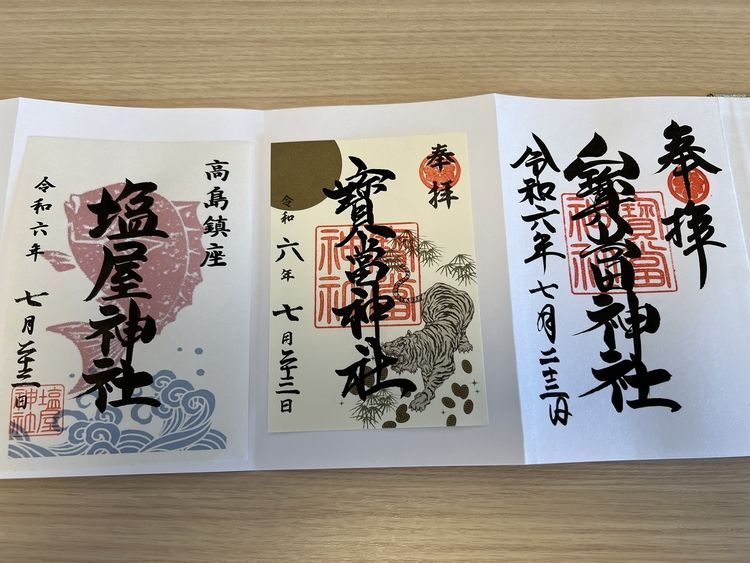 奉拝
寶當神社
寶當神社
令和六年七月二十三日
奉拝
寶當神社
寶當神社
令和六年七月二十三日
高島鎮座
塩屋神社
令和六年七月二十三日
塩屋神社